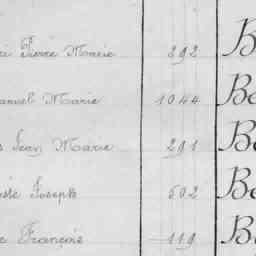 Pierre Marie 292 B
Marie 1044 Be
Jean Marie 291 Be
Joseph 502 Be
François 119 B